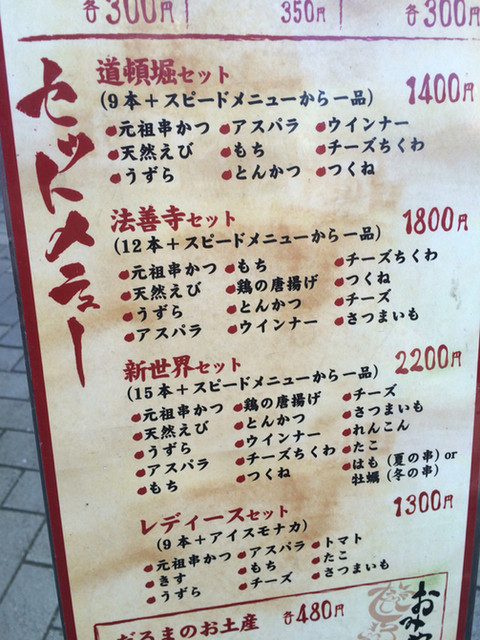 各300円 350円 各300円
セットメニュー
道頓堀セット 1400円
(9本+スピードメニューから一品)
元祖串かつ アスパラ ウインナー
天然えび もち チーズちくわ
うずら とんかつ つくね
法善寺セット 1800円
(12本+スピードメニューから一品)
元祖串かつ もち チーズちくわ
天然えび 鶏の唐揚げ つくね
うずら とんかつ チーズ
アスパラ ウインナー さつまいも
新世界セット 2200円
(15本+スピードメニューから一品)
元祖串かつ 鶏の唐揚げ チーズ
天然えび とんかつ さつまいも
うずら ウインナー れんこん
アスパラ チーズちくわ たこ
もち つくね はも(夏の串)or
牡蠣(冬の串)
レディースセット 1300円
(9本+アイスモナカ)
元祖串かつ アスパラ トマト
きす もち たこ
うずら チーズ さつまいも
だるまのお土産 各480円